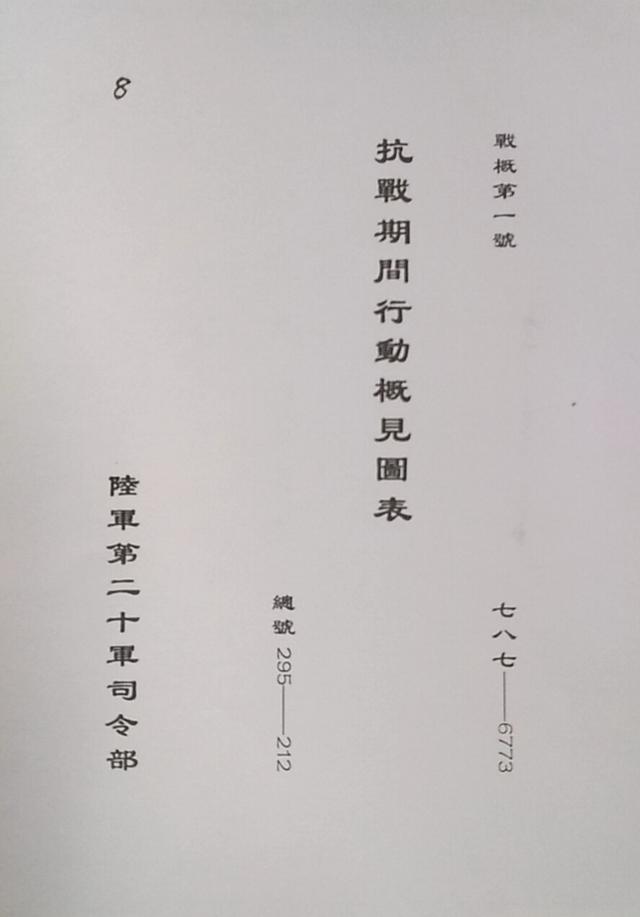 戰概第一號
七八七——6773
抗戰期間行動概見圖表
總號 295——212
陸軍第二十軍司令部
8